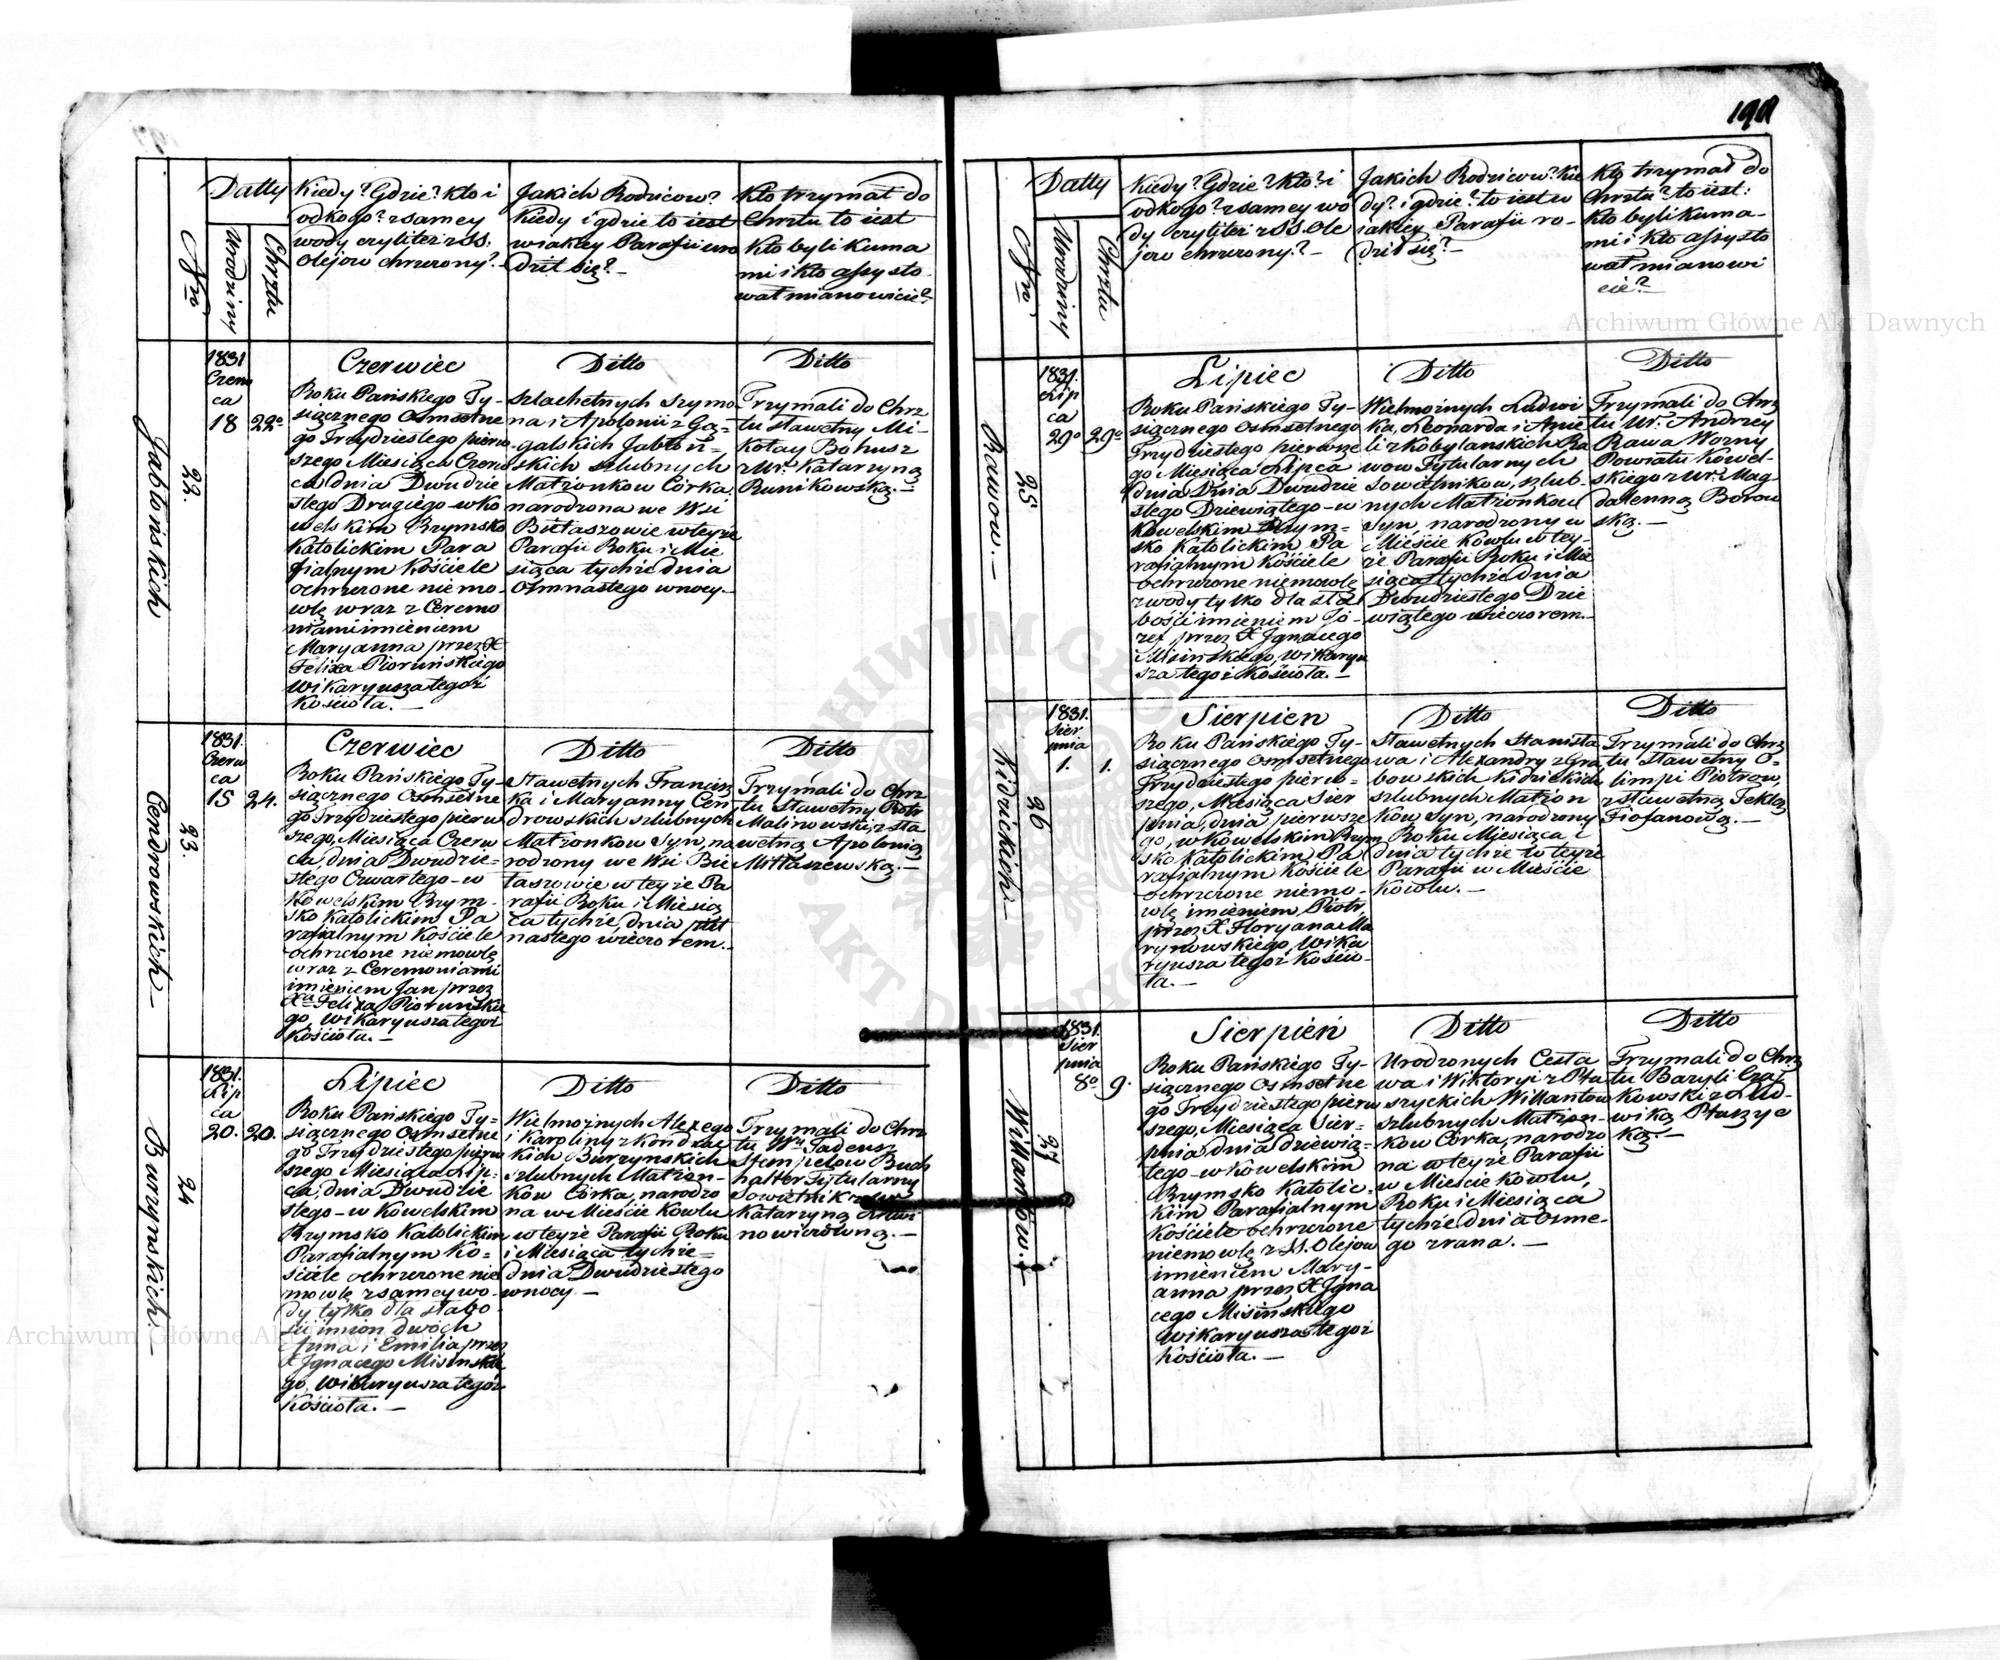 190
Datty
Nro
Urodziny
Chrztu
Kiedy? Gdzie? Kto i
odkogo? z samey
wody czyliteż z SS.
Olejow chrzczony?
Jakich Rodzicow?
Kiedy i gdzie to iest
w iakiey Parafii uro
dził się? —
Kto trzymał do
Chrztu to iest
kto byli kuma
mi i kto assysto
wał mianowicie?
Jabłońskich
22.
1831
Czerw
ca
18
22º
Czerwiec
Roku Pańskiego Ty-
siącznego Osmsetne
go Trzydziestego pierw
szego Miesiąca Czerw
ca dnia Dwudzie
stego Drugiego w Ko
welskim Rzymsko
Katolickim Para
fialnym Kościele
ochrzczone niemo-
wlę wraz z Ceremo
niami imieniem
Maryanna przez X
Felixa Pioruńskiego
Wikaryusza tegoż
Kościoła. —
Ditto
Szlachetnych Szymo
na i Apolonii z Gą=
galskich Jabłoń=
skich szlubnych
Matżonkow Córka,
narodzona we Wsi
Biełaszowie w teyże
Parafii Roku i Mie
siąca tychże dnia
Osmnastego w nocy. —
Ditto
Trzymali do Chrz
tu sławetny Mi-
kołay Bohusz
z Wą. Katarzyną
Runikowską. —
Cendrowskich —
23.
1831.
Czerw
ca
15
24.
Czerwiec
Roku Pańskiego Ty-
siącznego Osmsetne
go Trzydziestego pierw
szego, Miesiąca Czerw
ca, dnia Dwudzie-
stego Czwartego — w
Kowelskim Rzym-
sko Katolickim Pa
rafialnym Kościele
ochrzczone niemowlę
wraz z Ceremoniami
imieniem Jan przez
Xa Felixa Pioruńskie
go, Wikaryusza tegoż
Kościoła. —
Ditto
Sławetnych Francisz
ka i Maryanny Cen
drowskich szlubnych
Matżonkow Syn, na
rodzony we Wsi Bie
łaszowie w teyże Pa
rafii Roku i Miesią
ca tychże, dnia pięt
nastego wieczorem. —
Ditto
Trzymali do Chrz
tu Sławetny Piotr
Malinowski, z sła
wetną Apolonią
Mittaszewską. —
Burzynskich —
24
1831.
Lip
ca
20.
20.
Lipiec
Roku Pańskiego Ty=
siącznego Osmsetne
go Trzydziestego pierw
szego Miesiąca Lip=
ca, dnia Dwudzie
stego — w Kowelskim
Rzymsko Katolickim
Parafialnym Ko=
ściele ochrzczone nie
mowlę z samey wo-
dy tylko dla słabo
ści imion dwóch
Anna i Emilia przez
X Ignacego Misinskie
go, Wikaryusza tegoż
Kościoła. —
Ditto
Wielmożnych Alexego
i Karoliny z Kondzie
kich Burzynskich
szlubnych Matżon-
ków Córka, narodzo
na w Mieście Kowlu
w teyże Parafii Roku
i Miesiąca tychże =
dnia Dwudziestego
w nocy. —
Ditto
Trzymali do Chrz
tu Wny Tadeusz
Stempelow Buch
halter Tytularny
Sowietnik z
Katarzyną
nowiczówną. —
Datty
Nro
Urodziny
Chrztu
Kiedy? Gdzie? Kto? i
odkogo? z samey wo
dy czyliteż z SS Ole
jow chrzczony? —
Jakich Rodzicow? Kie
dy? i gdzie? to iest w
iakiey Parafii ro-
dził się? —
Kto trzymał do
Chrztu? to iest:
kto byli kuma-
mi i kto assysto
wał mianowi
cie? —
Rawow. —
25º
1831.
Lip
ca
29º
29º
Lipiec
Roku Pańskiego Ty-
siącznego Osmsetnego
Trzydziestego pierwsze
go Miesiąca Lipca
dnia Dnia Dwudzie
stego Dziewiątego — w
Kowelskim Rzym=
sko Katolickim Pa
rafialnym Kościele
ochrzczone niemowlę
z wody tylko dla sła
bości imieniem Jó-
zef, przez X Ignacego
Misinskiego, Wikaryu
sza tegoż Kościoła. —
Ditto
Wielmożnych Ludwi
ka, Leonarda i Anie
li z Kobylanskich Ra
wow Tytularnych
Sowietnikow, szlub-
nych Matżonkow
Syn, narodzony w
Mieście Kowlu w tey-
że Parafii Roku i Mie
siąca tychże dnia
Dwudziestego Dzie
wiątego wieczorem. —
Ditto
Trzymali do Chrz
tu Ur. Andrzey
Rawa Wozny
Powiatu Kowel-
skiego z Ur. Mag
daleną Borow
ską. —
Kidzickich —
26
1831.
Sier
pnia
1.
1.
Sierpien
Roku Pańskiego Ty-
siącznego Osmsetnego
Trzydziestego pierw-
szego, Miesiąca Sier
pnia, dnia pierwsze
go, w Kowelskim Rzym
sko Katolickim Pa
rafialnym Kościele
ochrzczone niemo-
wlę imieniem Piotr
przez X Floryana Ma
rynowskiego, Wika
ryusza tegoż Kościo-
ła. —
Ditto
Sławetnych Stanisła
wa i Alexandry z Gra
bowskich Kidzickich
szlubnych Matżon
ków Syn, narodzony
Roku Miesiąca i
dnia tychże w teyże
Parafii w Mieście
Kowlu. —
Ditto
Trzymali do Chrz
tu Sławetny O-
limpi Piotrow
z sławetną Teklą
Fiofanową. —
Wiłłantów. —
27
1831.
Sier
pnia
8º
9.
Sierpień
Roku Pańskiego Ty-
siącznego Osmsetne
go Trzydziestego pierw
szego, Miesiąca Sier-
pnia dnia dziewią-
tego — w Kowelskim
Rzymsko Katolic-
kim Parafialnym
Kościele ochrzczone
niemowlę z SS. Olejow
imieniem Mary-
anna przez X Igna
cego Misinskiego
Wikaryusza tegoż
Kościoła. —
Ditto
Urodzonych Cesła
wa i Wiktoryi z Ptu
szyckich Wiłłantow
szlubnych Matżon-
kow Córka, narodzo
na w teyże Parafii
w Mieście Kowlu,
Roku i Miesiąca
tychże dnia Osme-
go z rana. —
Ditto
Trzymali do Chrz
tu Bazyli Czaj
kowski z Lud-
wiką Ptuszyc
ką. —
Archiwum Główne Akt Dawnych
Archiwum Główne Akt Dawnych
ARCHIWUM GŁÓWNE
AKT DAWNYCH